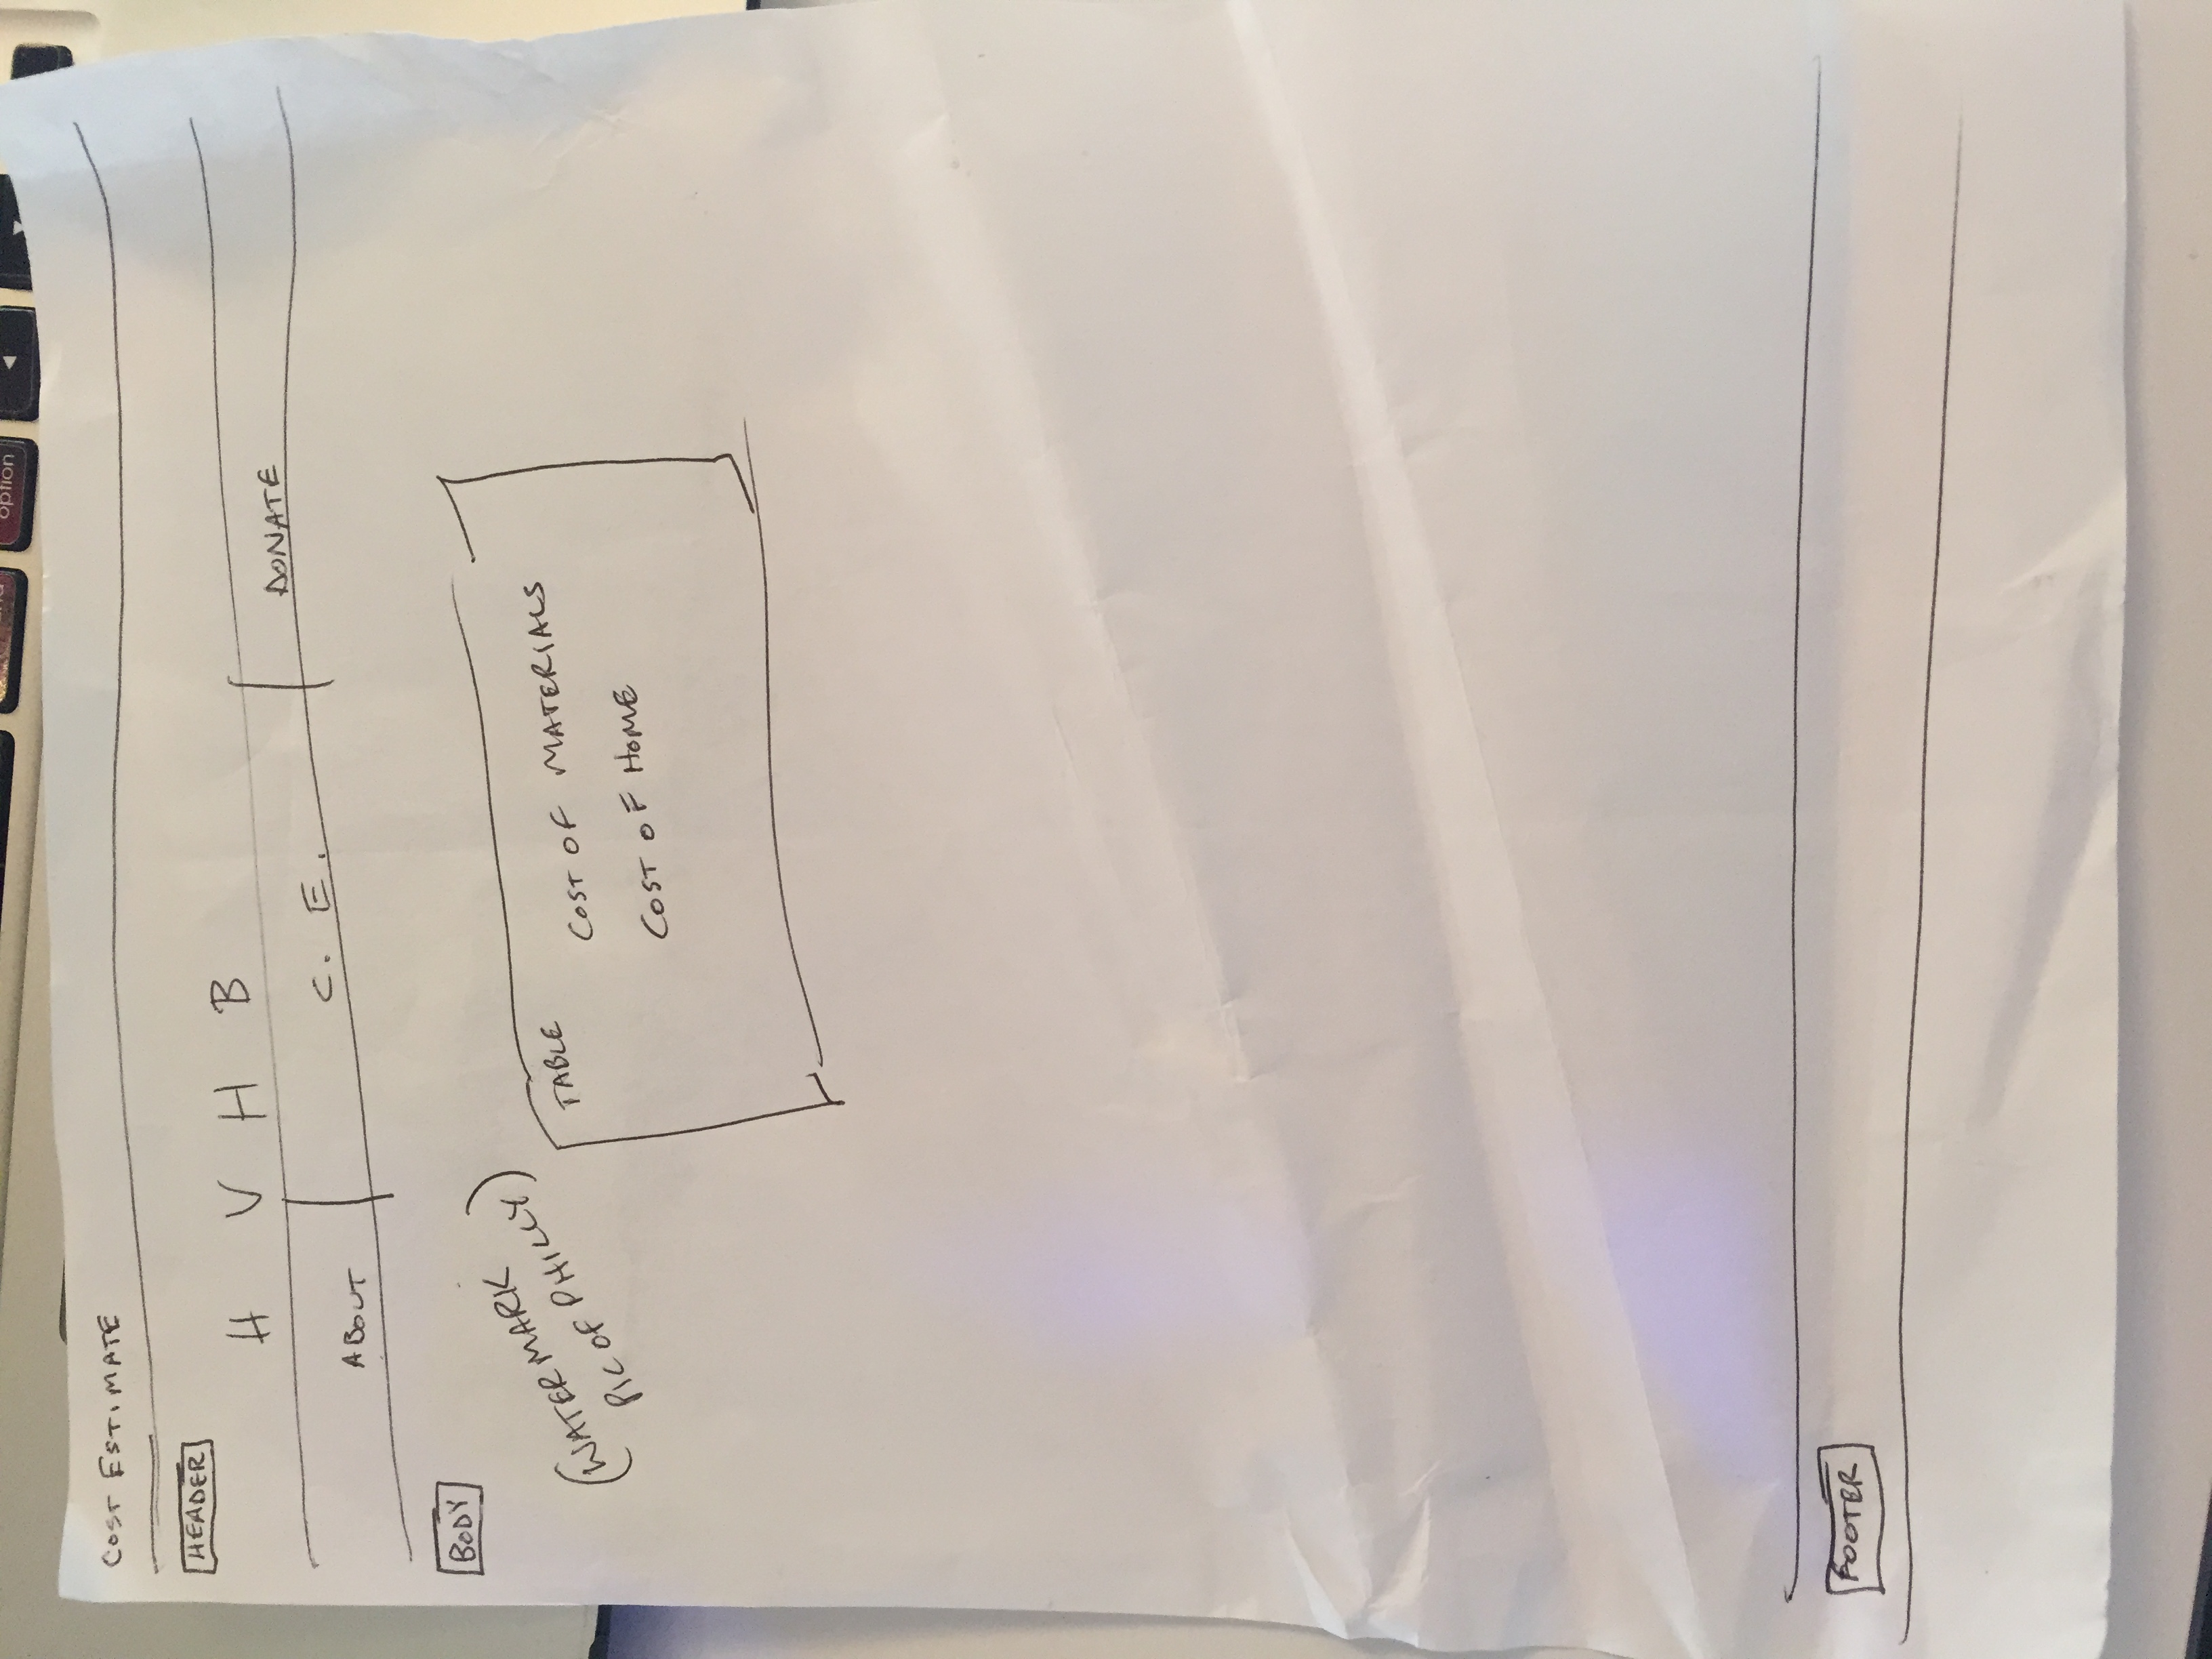 option
COST ESTIMATE
HEADER
H V H B
ABOUT C. E. DONATE
BODY
(WATERMARK
PIC OF PHILLY)
TABLE COST OF MATERIALS
COST OF HOME
FOOTER